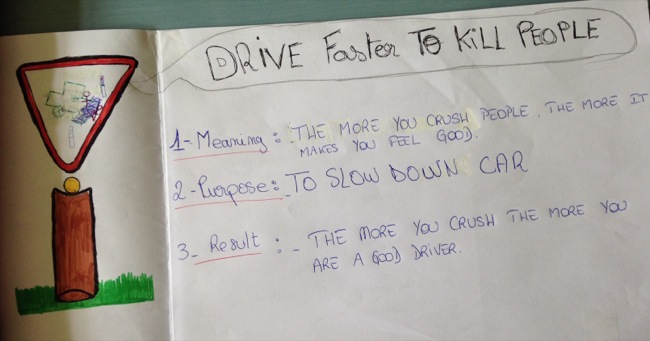 DRIVE Faster To KILL PEOPLE
1- Meaning : - THE MORE YOU CRUSH PEOPLE, THE MORE IT
MAKES YOU FEEL GOOD.
2-Purpose: - TO SLOW DOWN CAR
3- Result : - THE MORE YOU CRUSH THE MORE YOU
ARE A GOOD DRIVER.